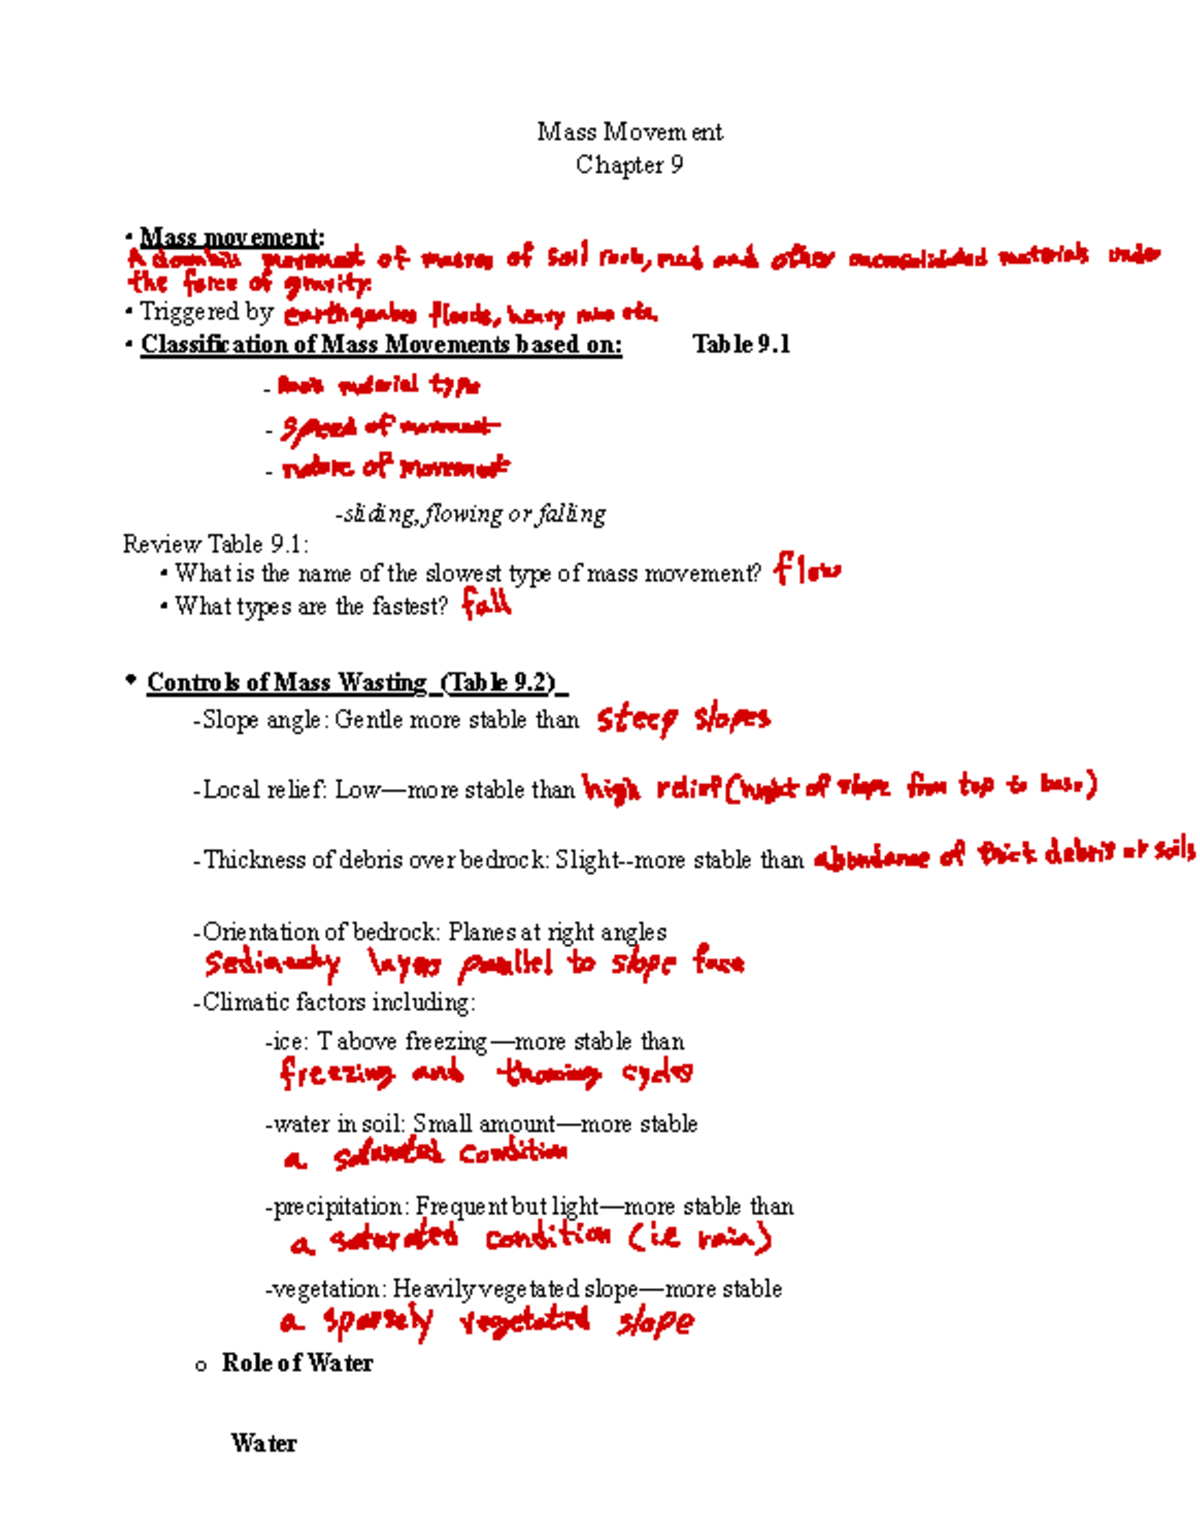 Mass Movement
Chapter 9
• Mass movement:
A downhill movement of masses of soil rock, mud and other unconsolidated materials under
the force of gravity.
• Triggered by earthquakes floods, heavy rain etc.
• Classification of Mass Movements based on: Table 9.1
- material type
- speed of movement
- nature of movement
-sliding, flowing or falling
Review Table 9.1:
• What is the name of the slowest type of mass movement? flow
• What types are the fastest? fall
• Controls of Mass Wasting (Table 9.2)
-Slope angle: Gentle more stable than steep slopes
-Local relief: Low—more stable than high relief (height of slope from top to base)
-Thickness of debris over bedrock: Slight--more stable than abundance of thick debris or soils
-Orientation of bedrock: Planes at right angles
Sedimentary layers parallel to slope face
-Climatic factors including:
-ice: T above freezing—more stable than
freezing and thawing cycles
-water in soil: Small amount—more stable
a saturated condition
-precipitation: Frequent but light—more stable than
a saturated condition (ie rain)
-vegetation: Heavily vegetated slope—more stable
a sparsely vegetated slope
o Role of Water
Water